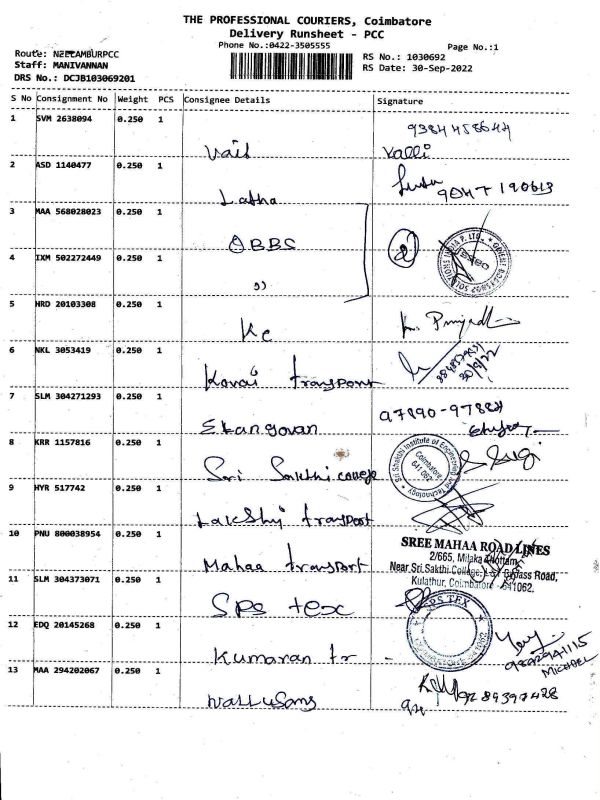 THE PROFESSIONAL COURIERS, Coimbatore
Delivery Runsheet - PCC
Phone No.:0422-3505555
Page No.:1
Route: NEELAMBURPCC
Staff: MANIVANNAN
DRS No.: DCJB103069201
RS No.: 1030692
RS Date: 30-Sep-2022
S No Consignment No Weight PCS Consignee Details Signature
1 SVM 2638094 0.250 1 Valli
2 ASD 1140477 0.250 1 Latha
3 MAA 568028023 0.250 1 OBBS
4 IXM 502272449 0.250 1 ")
5 HRD 20103308 0.250 1 Kc
6 NKL 3053419 0.250 1 Kovai transport
7 SLM 304271293 0.250 1 97890-97884
8 KRR 1157816 0.250 1 Sri Sakthi college
Sri Shakthi Institute of Engineering and Technology
Coimbatore
641 062
9 HYR 517742 0.250 1 Lakshi transport
10 PNU 800038954 0.250 1 Mahaa transport
SREE MAHAA ROAD LINES
2/665, Milaka Thottam,
Near Sri.Sakthi College, L&T Bypass Road,
Kulathur, Coimbatore - 641062.
11 SLM 304373071 0.250 1 SPS tex
SPS TEX
12 EDQ 20145268 0.250 1 Kumaran tr -
MICHAEL
13 MAA 294202067 0.250 1 9289397428